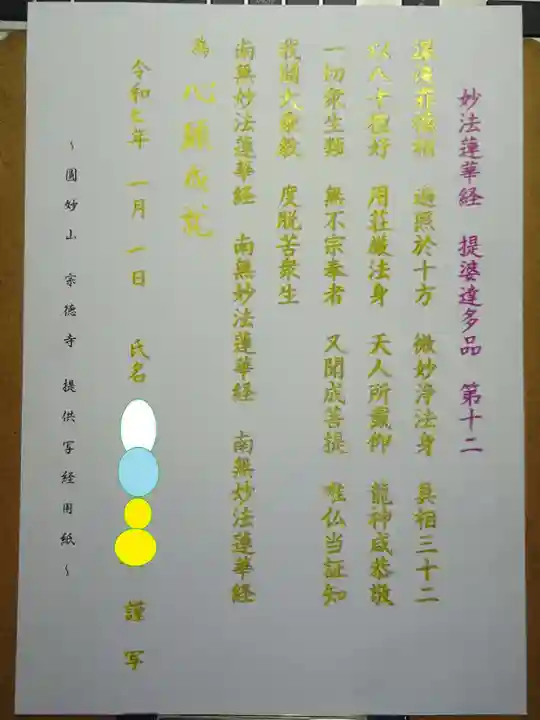 妙法蓮華経 提婆達多品 第十二
深達罪福相 遍照於十方 微妙浄法身 具相三十二
以八十種好 用荘厳法身 天人所戴仰 龍神咸恭敬
一切衆生類 無不宗奉者 又聞成菩提 唯仏当証知
我闡大乗教 度脱苦衆生
南無妙法蓮華経 南無妙法蓮華経 南無妙法蓮華経
為 心願成就
令和七年 一月 一日 氏名 謹写
~圓妙山 宗徳寺 提供写経用紙~